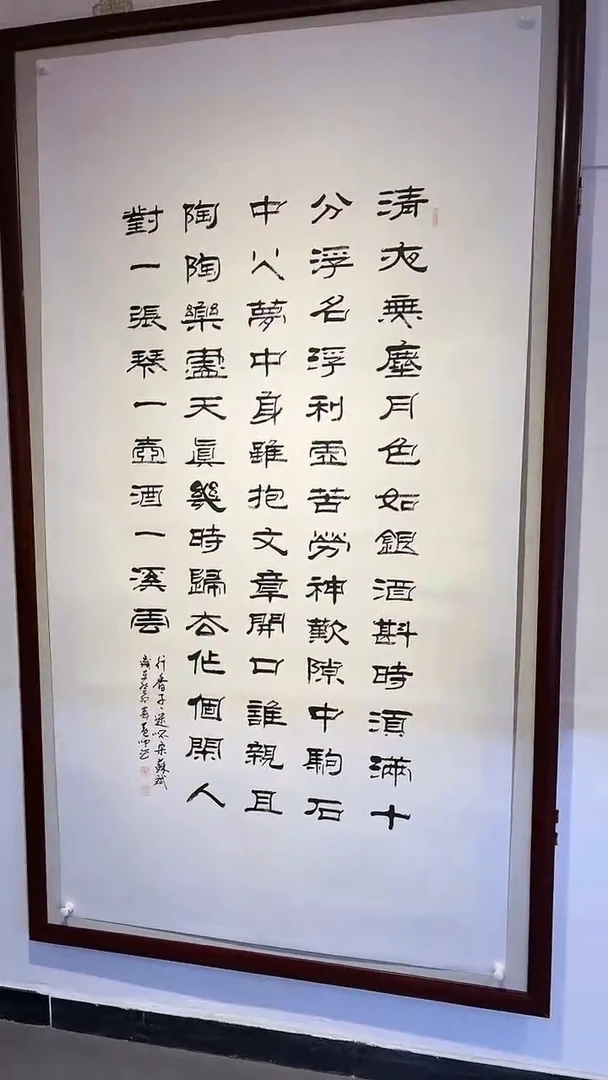 清夜無塵月色如銀酒斟時須滿十
分浮名浮利虛苦勞神歎隙中駒石
中火夢中身雖抱文章開口誰親且
陶陶樂盡天真幾時歸去作個閑人
對一張琴一壺酒一溪雲
行香子·述怀宋蘇軾
癸卯